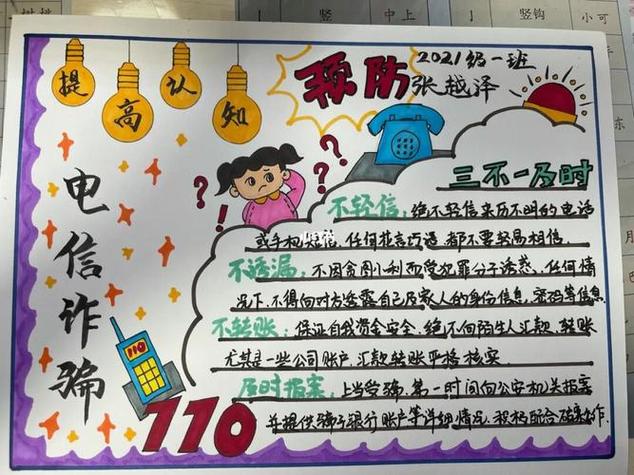 提高认知
预防
2021级一班
张越泽
电信诈骗
三不一及时
不轻信：绝不轻信来历不明的电话
或手机短信，任何花言巧语，都不要轻易相信.
不透漏：不因贪图小利而受犯罪分子诱惑，任何情
况下，不得向对方透露自己及家人的身份信息，密码等信息
不转账：保证自我资金安全，绝不向陌生人汇款、转账
尤其是一些公司账户，汇款转账严格核实
及时报案：上当受骗，第一时间向公安机关报案
并提供骗子银行账户等详细情况，积极配合破案工作.
110
110
竖
中上
竖钩
小可